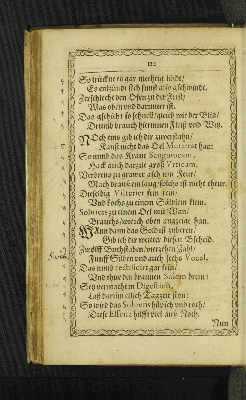 110
So trückne es gar mechtig lindt/
Es entzündt sich sunst also gschwindt.
Zerschlecht den Ofen zu der Frist/
Was oben und darunter ist.
Das gschicht so schnell/ gleich wie der Blitz/
Drumb brauch hierinnen Fleiß und Witz.
Noch eins gib ich dir zuverstahn/
Kanst nicht das Oel Mercurii han:
So nimb das Kraut
Hack auch darzu groß
Verbrens zu graver asch mit
Mach drauß ein laug/ solche ist nicht thewr.
Dieselbig Vilterier sein rein/
Und kochs zu einem Sältzlein klein.
Solviers zu einem Oel mit Wan/
Brauchs/ wie ich oben angzeigt han.
Wann dann das Gold ist zuberein/
Gib ich dir weitter diesen Bscheid.
Zwölff Buchstaben/ vierzehen Zahl/
Fünff Silben und auch sechs Vocal,
Das nimb rectificiert gar fein/
Und thue den braunen Salem drein:
Setz vermacht in Digestion,
Laß darinn etlich Tagzeit ston:
So wird das Solvens hüpsch und roth/
Diese Essentz hilfft viel auß Noth.
Nun